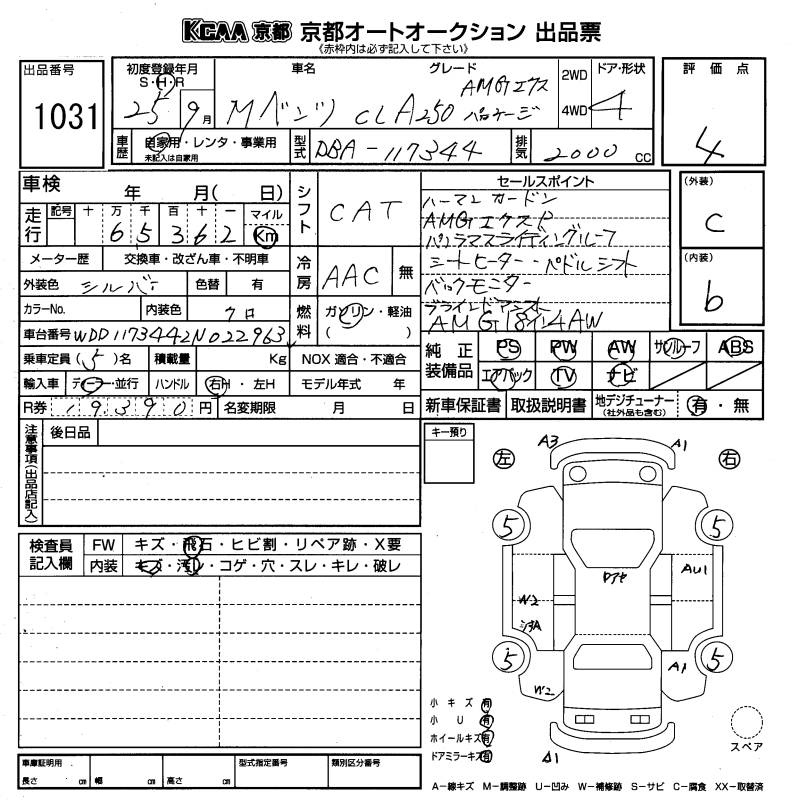 KCAA 京都 京都オートオークション 出品票
《赤枠内は必ず記入して下さい》
出品番号
1031
初度登録年月
S・H・R
25 9月
車名
Mベンツ CLA250
グレード
AMGエクス
パッケージ
2WD
4WD
ドア・形状
4
評価点
4
車歴
自家用・レンタ・事業用
未記入は自家用
型式
DBA-117344
排気
2000 cc
車検 年 月( 日)
走行
記号 十 万 千 百 十 一 マイル
6 5 3 6 2 Km
メーター歴 交換車・改ざん車・不明車
外装色 シルバー 色替 有
カラーNo. 内装色 クロ
車台番号 WDD1173442N022963
乗車定員 (5)名 積載量 Kg NOX 適合・不適合
輸入車 ディーラー・並行 ハンドル 右H・左H モデル年式 年
R券 19390円 名変期限 月 日
シフト CAT
冷房 AAC 無
燃料 ガソリン・軽油
( )
セールスポイント
ハーマンカードン
AMGエクスP
パノラマスライディングルーフ
シートヒーター・パドルシフト
バックモニター
ブラインドアシスト
AMG18インチAW
(外装)
C
(内装)
b
純正装備品
PS PW AW サンルーフ ABS
エアバック TV ナビ
新車保証書 取扱説明書 地デジチューナー
(社外品も含む) 有・無
注意事項(出品店記入)
後日品
キー預り
検査員記入欄
FW キズ・飛石・ヒビ割・リペア跡・X要
内装 キズ・汚レ・コゲ・穴・スレ・キレ・破レ
左
右
A3
A1
5
5
AU1
W2
5
5
A1
W2
A1
小キズ 有
小U 有
ホイールキズ 有
ドアミラーキズ 有
スペア
車庫証明用
長さ cm 幅 cm 高さ cm
型式指定番号
類別区分番号
A-線キズ M-調整跡 U-凹み W-補修跡 S-サビ C-腐食 XX-取替済